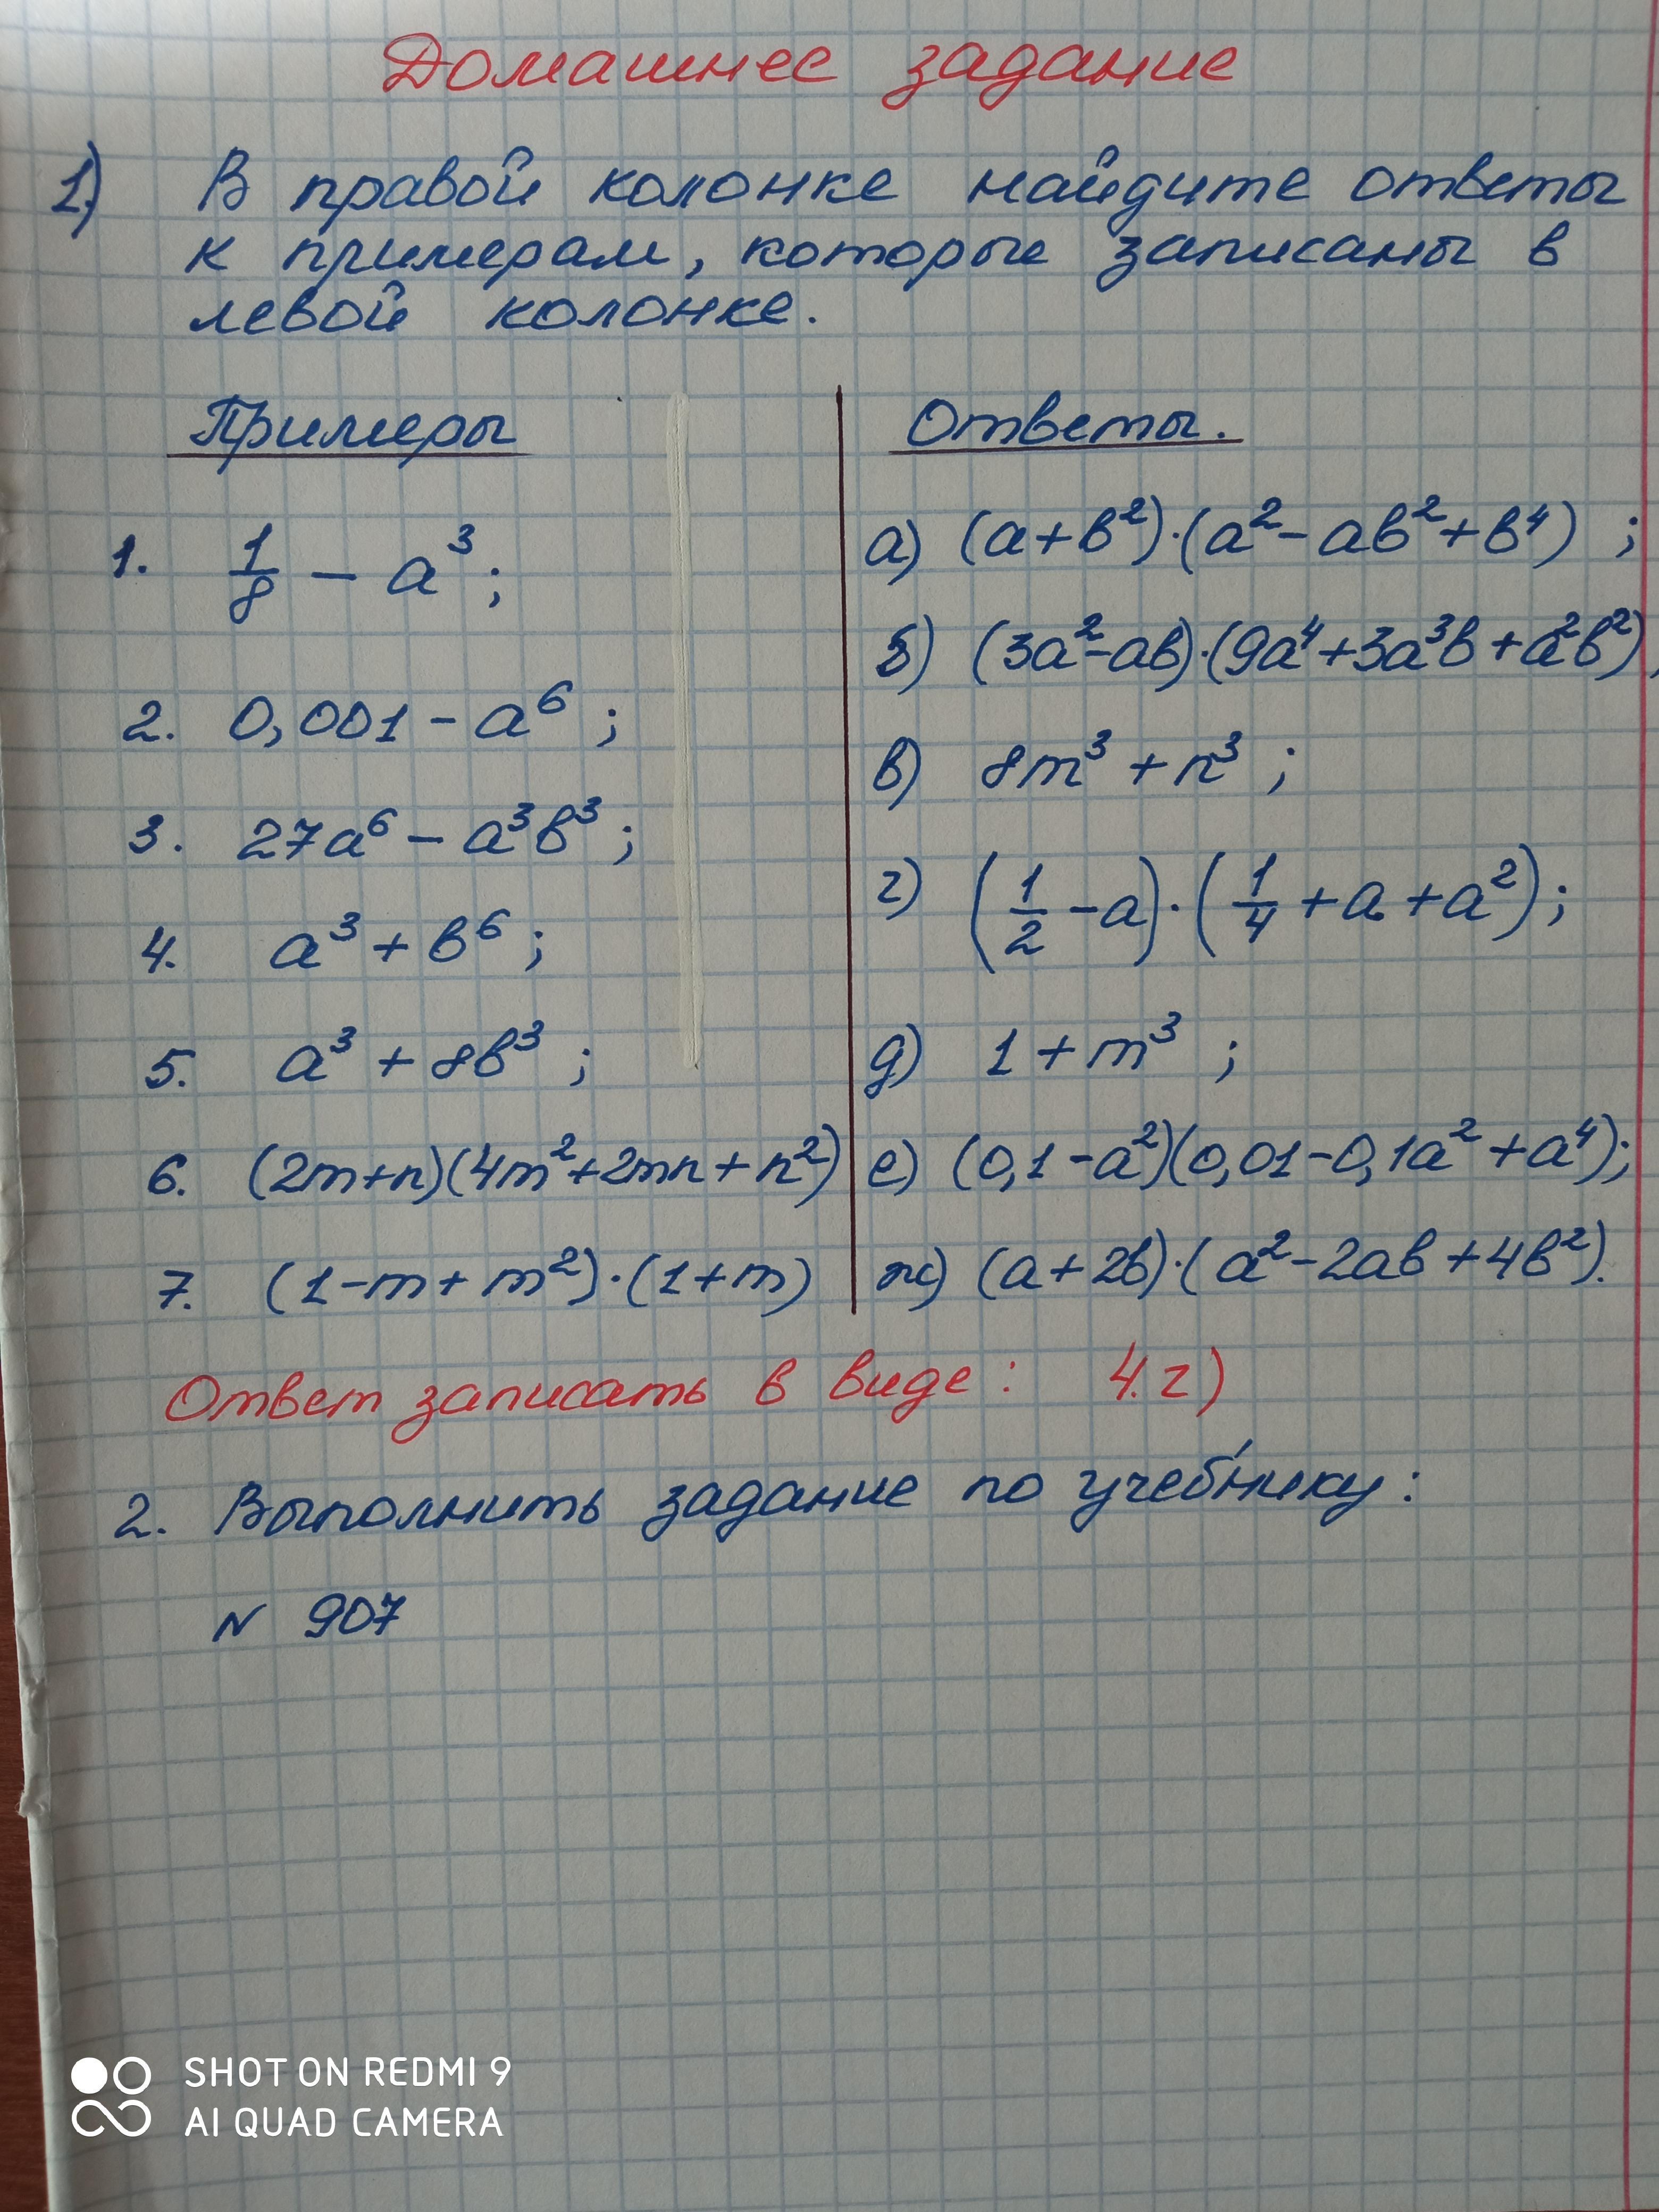 Домашнее задание
1.) В правой колонке найдите ответы
к примерам, которые записаны в
левой колонке.
Примеры
1. 1/8 - a³;
2. 0,001 - a⁶ ;
3. 27a⁶ - a³b³ ;
4. a³ + b⁶ ;
5. a³ + 8b³ ;
6. (2m+n)(4m²+2mn+n²)
7. (1-m+m²)·(1+m)
Ответы.
а) (a+b²)·(a²-ab²+b⁴) ;
б) (3a²-ab)·(9a⁴+3a³b+a²b²),
в) 8m³ + n³ ;
г) (1/2 - a)·(1/4 + a + a²);
д) 1 + m³ ;
е) (0,1-a²)(0,01-0,1a²+a⁴);
ж) (a+2b)·(a²-2ab+4b²).
Ответ записать в виде: 4.г)
2. Выполнить задание по учебнику:
N 907
SHOT ON REDMI 9
AI QUAD CAMERA